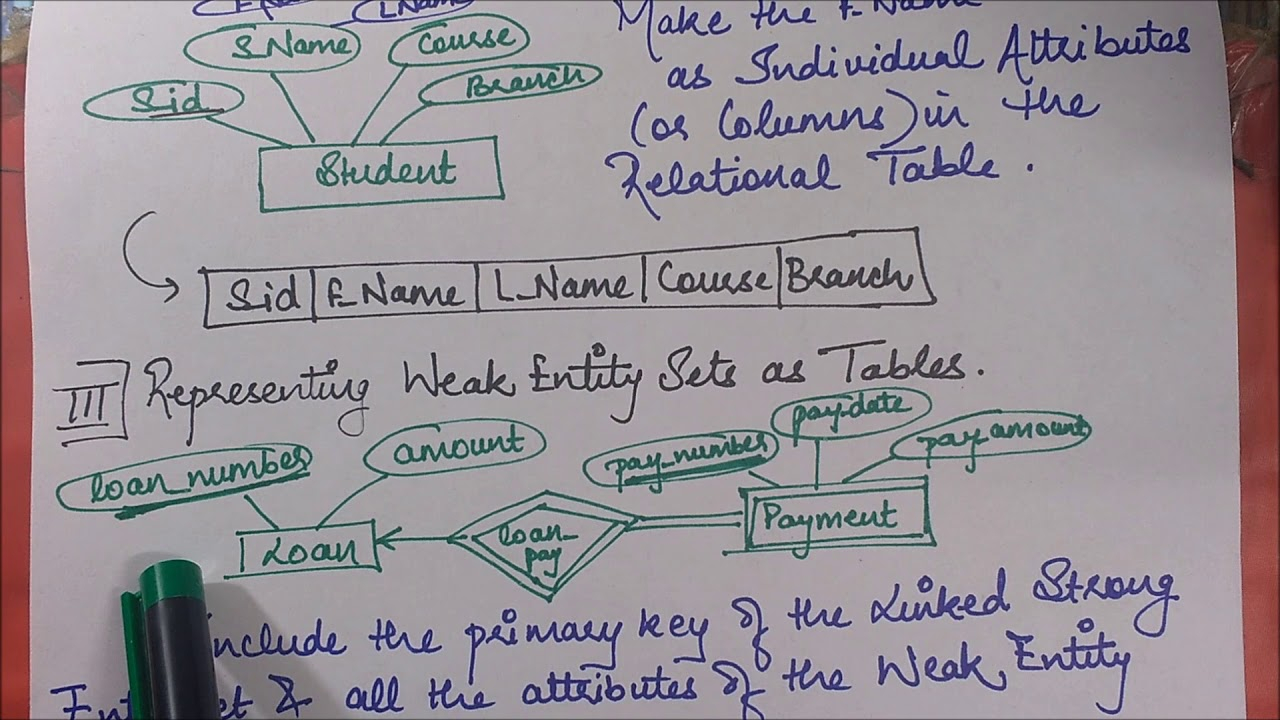 L_Name
S_Name
Course
Branch
Sid
Student
Make the F_Name
as Individual Attributes
(or Columns) in the
Relational Table.
Sid F_Name L_Name Course Branch
III Representing Weak Entity Sets as Tables.
loan_number
amount
pay_number
pay_date
pay_amount
Loan
loan_pay
Payment
include the primary key of the Linked Strong
& all the attributes of the Weak Entity